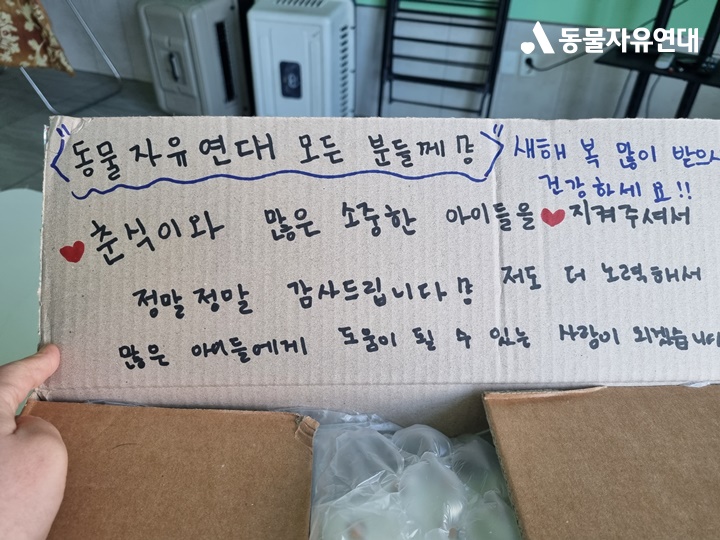 동물자유연대
동물자유연대 모든 분들께 많
새해 복 많이 받으
건강하세요!!
춘식이와 많은 소중한 아이들을 지켜주셔서
정말 정말 감사드립니다 저도 더 노력해서
많은 아이들에게 도움이 될 수 있는 사람이 되겠습니다